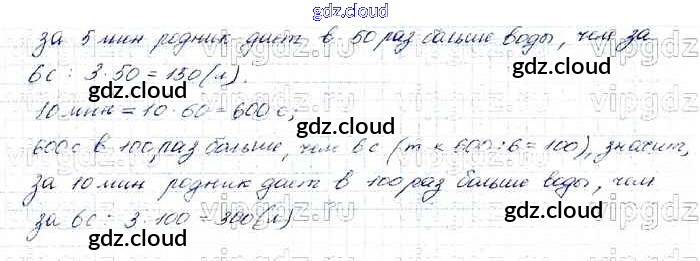 gdz.cloud
за 5 мин родник дает в 50 раз больше воды, чем за
6с : 3·50=150(л).
gdz.cloud gdz.cloud
10мин = 10·60=600с,
gdz.cloud
600с в 100 раз больше, чем 6с (т.к 600:6=100), значит,
за 10 мин родник дает в 100 раз больше воды, чем
gdz.cloud gdz.cloud
за 6с - 3·100=300(л)